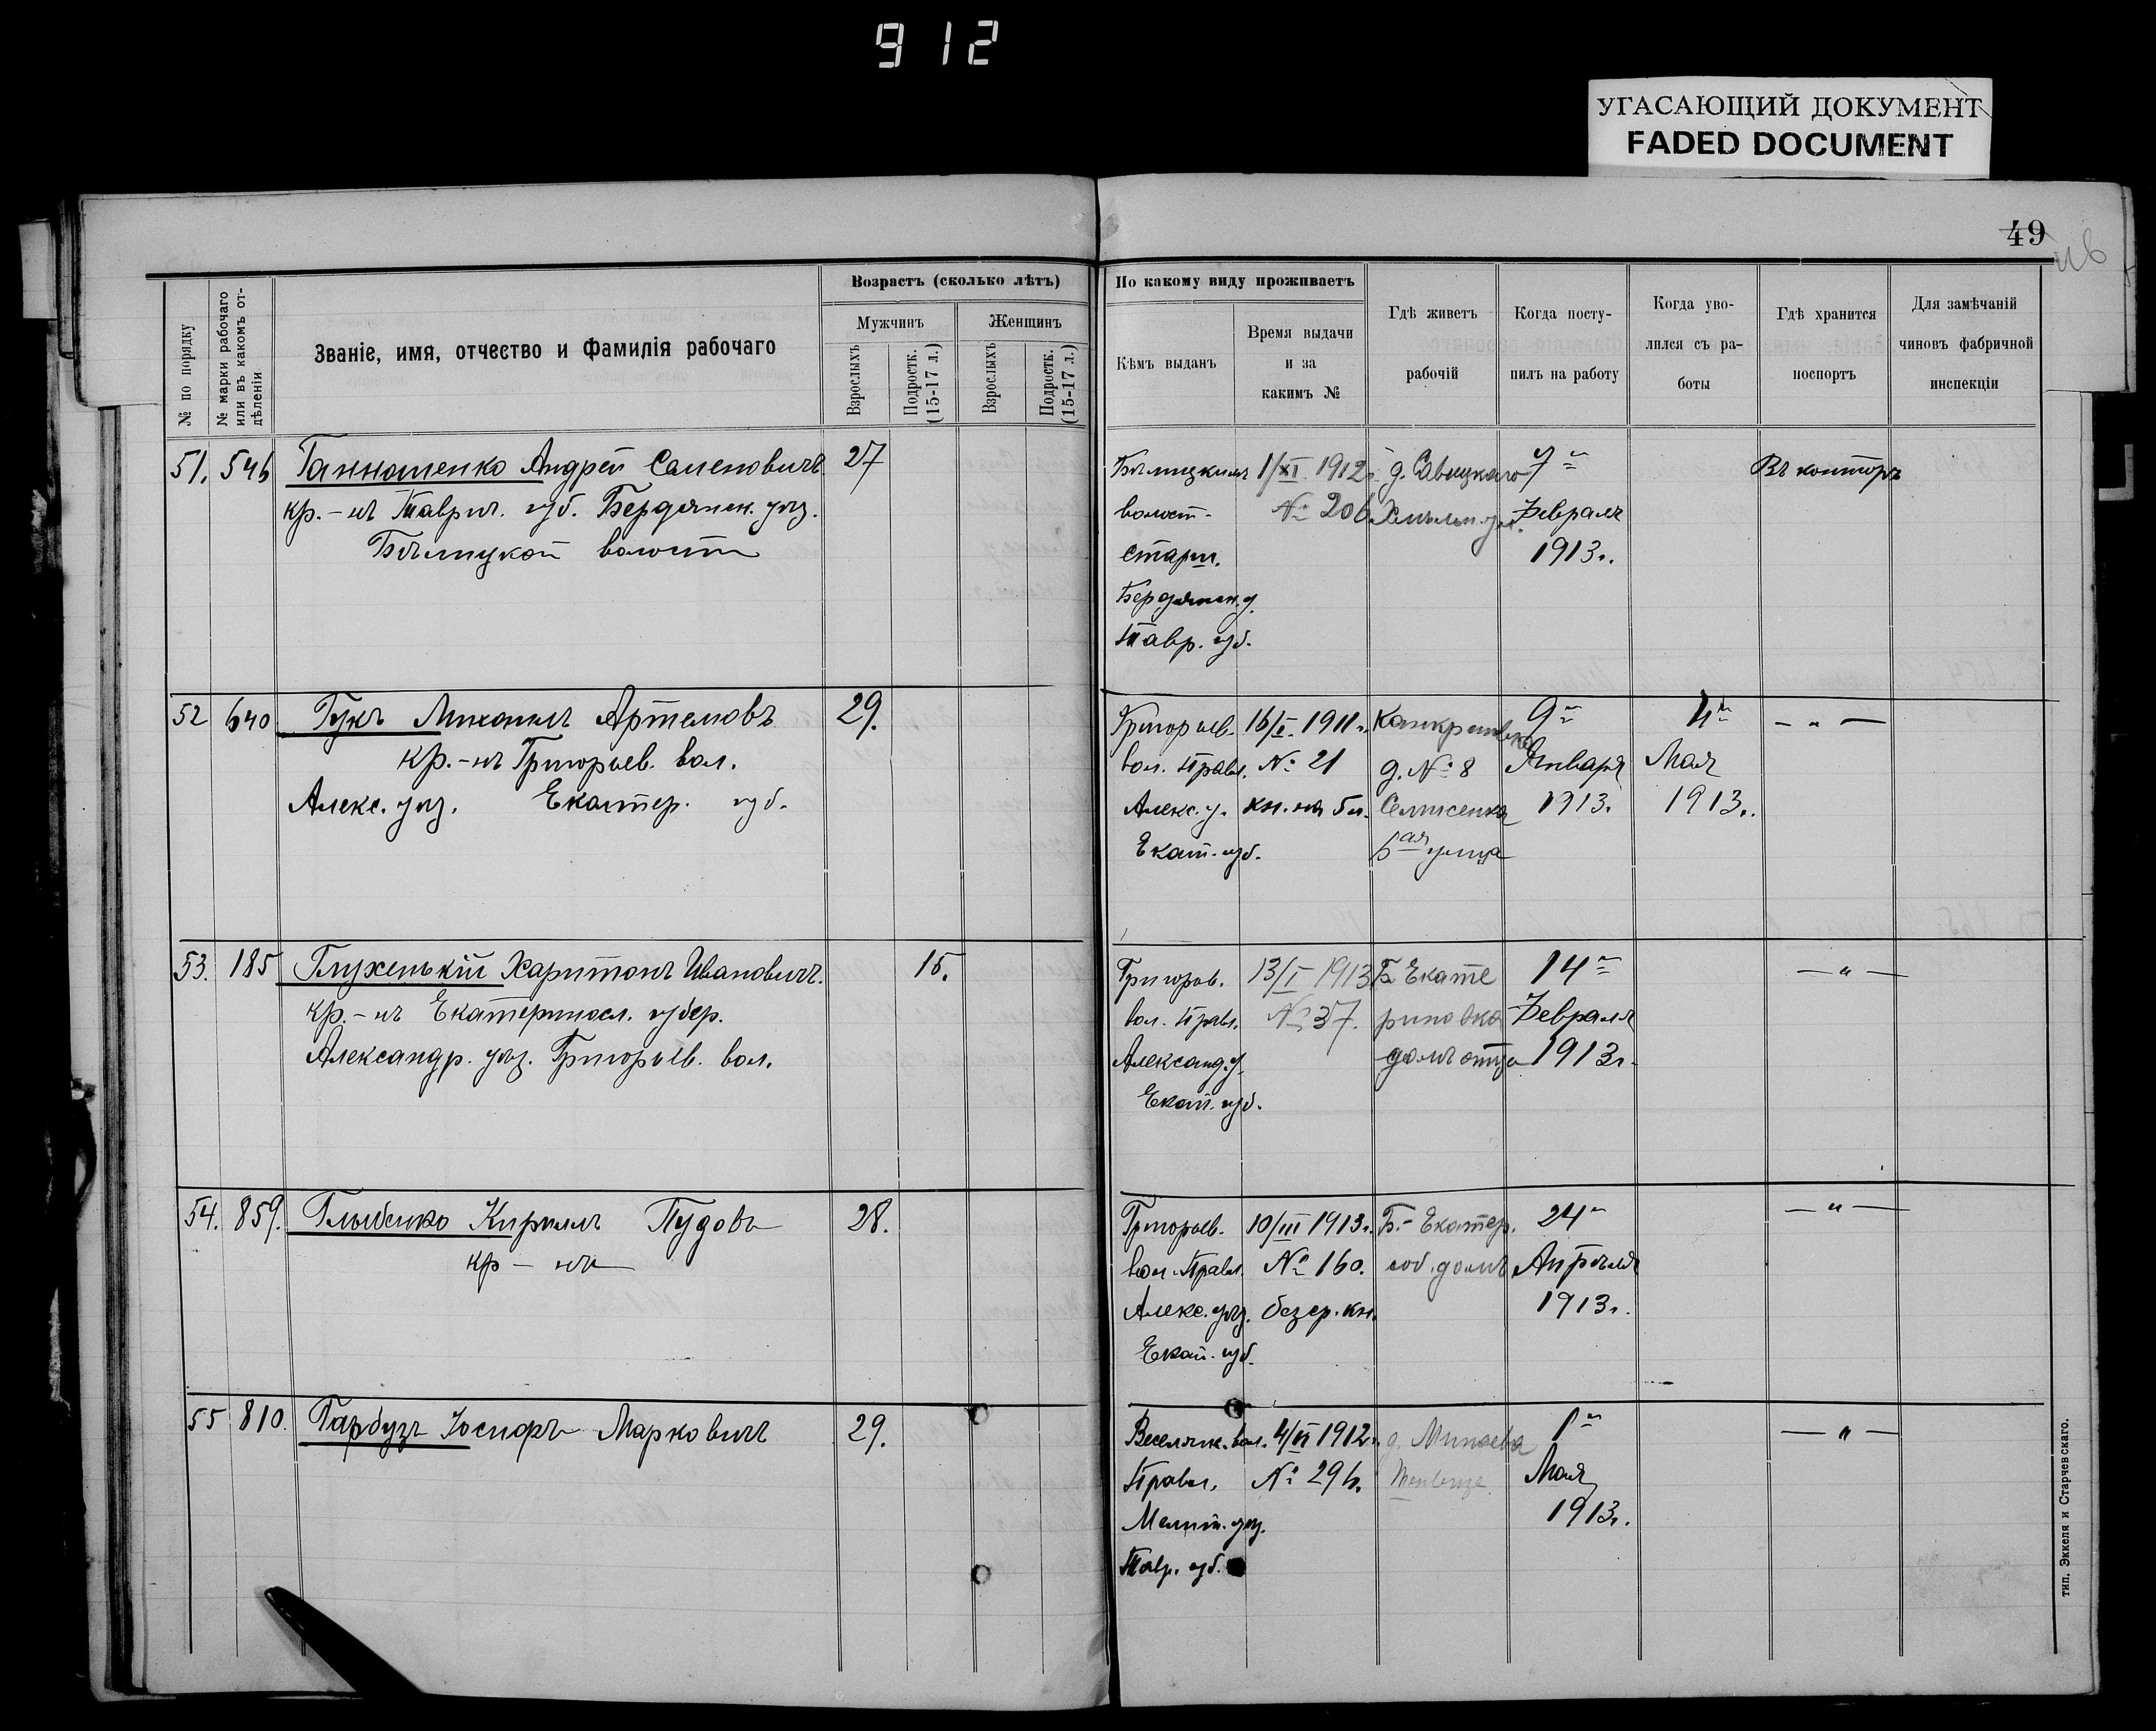 912
УГАСАЮЩИЙ ДОКУМЕНТ
FADED DOCUMENT
49
№ по порядку
№ марки рабочаго
или въ какомъ от-
дѣленіи
Званіе, имя, отчество и Фамилія рабочаго
Возрастъ (сколько лѣтъ)
Мужчинъ
Женщинъ
Взрослыхъ
Подростк.
(15-17 л.)
Взрослыхъ
Подростк.
(15-17 л.)
По какому виду проживаетъ
Кѣмъ выданъ
Время выдачи
и за
какимъ №
Гдѣ живетъ
рабочій
Когда посту-
пилъ на работу
Когда уво-
лился съ ра-
боты
Гдѣ хранится
поспортъ
Для замѣчаній
чиновъ фабричной
инспекціи
51. 546 Андрей Семеновичъ 27
кр.-нъ Таврич. губ. Бердянск. уѣз.
волости
волост.
старш.
Бердянск. у.
Тавр. губ.
1/XI 1912г.
№ 206
д.
7го
Февраля
1913г.
Въ конторѣ
52 640 Гукъ Михаилъ Артемовъ 29.
кр.-нъ Григорьев. вол.
Алекс. уѣз. Екатер. губ.
Григорьев.
вол. Правл.
Алекс. у.
Екат. губ.
16/I 1911г.
№ 21
кн. на 5 л.
д. № 8
улица
9го
Января
1913.
4го
Мая
1913г.
— „ —
53. 185 Глухенькій Харитонъ Ивановичъ. 15.
кр.-нъ Екатериносл. губер.
Александр. уѣз. Григорьев. вол.
Григоров.
вол. Правл.
Александ. у.
Екат. губ.
13/I 1913
№ 37.
Б. Екате
риновка
домъ отца
14го
Февраля
1913г.
— „ —
54. 859. Глыбенко Кириллъ Пудовъ 28.
кр-нъ
Григорьев.
вол. Правл.
Алекс. уѣз.
Екат. губ.
10/III 1913г.
№ 160.
безср. кн.
Б.-Екатер.
соб. домъ
24го
Апрѣля
1913г.
— „ —
55 810. Гарбузъ Іосифъ Марковичъ 29.
Веселянск. вол.
Правл.
Мелит. уѣз.
Тавр. губ.
4/VI 1912г.
№ 296.
д. Минаева
1го
Мая
1913г.
— „ —
тип. Эккеля и Старчевскаго.